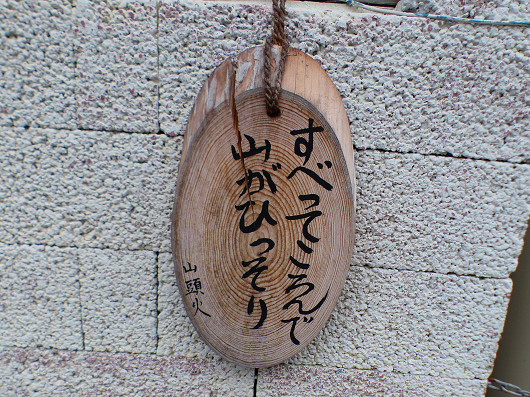 すべってころんで
山がひっそり
山頭火